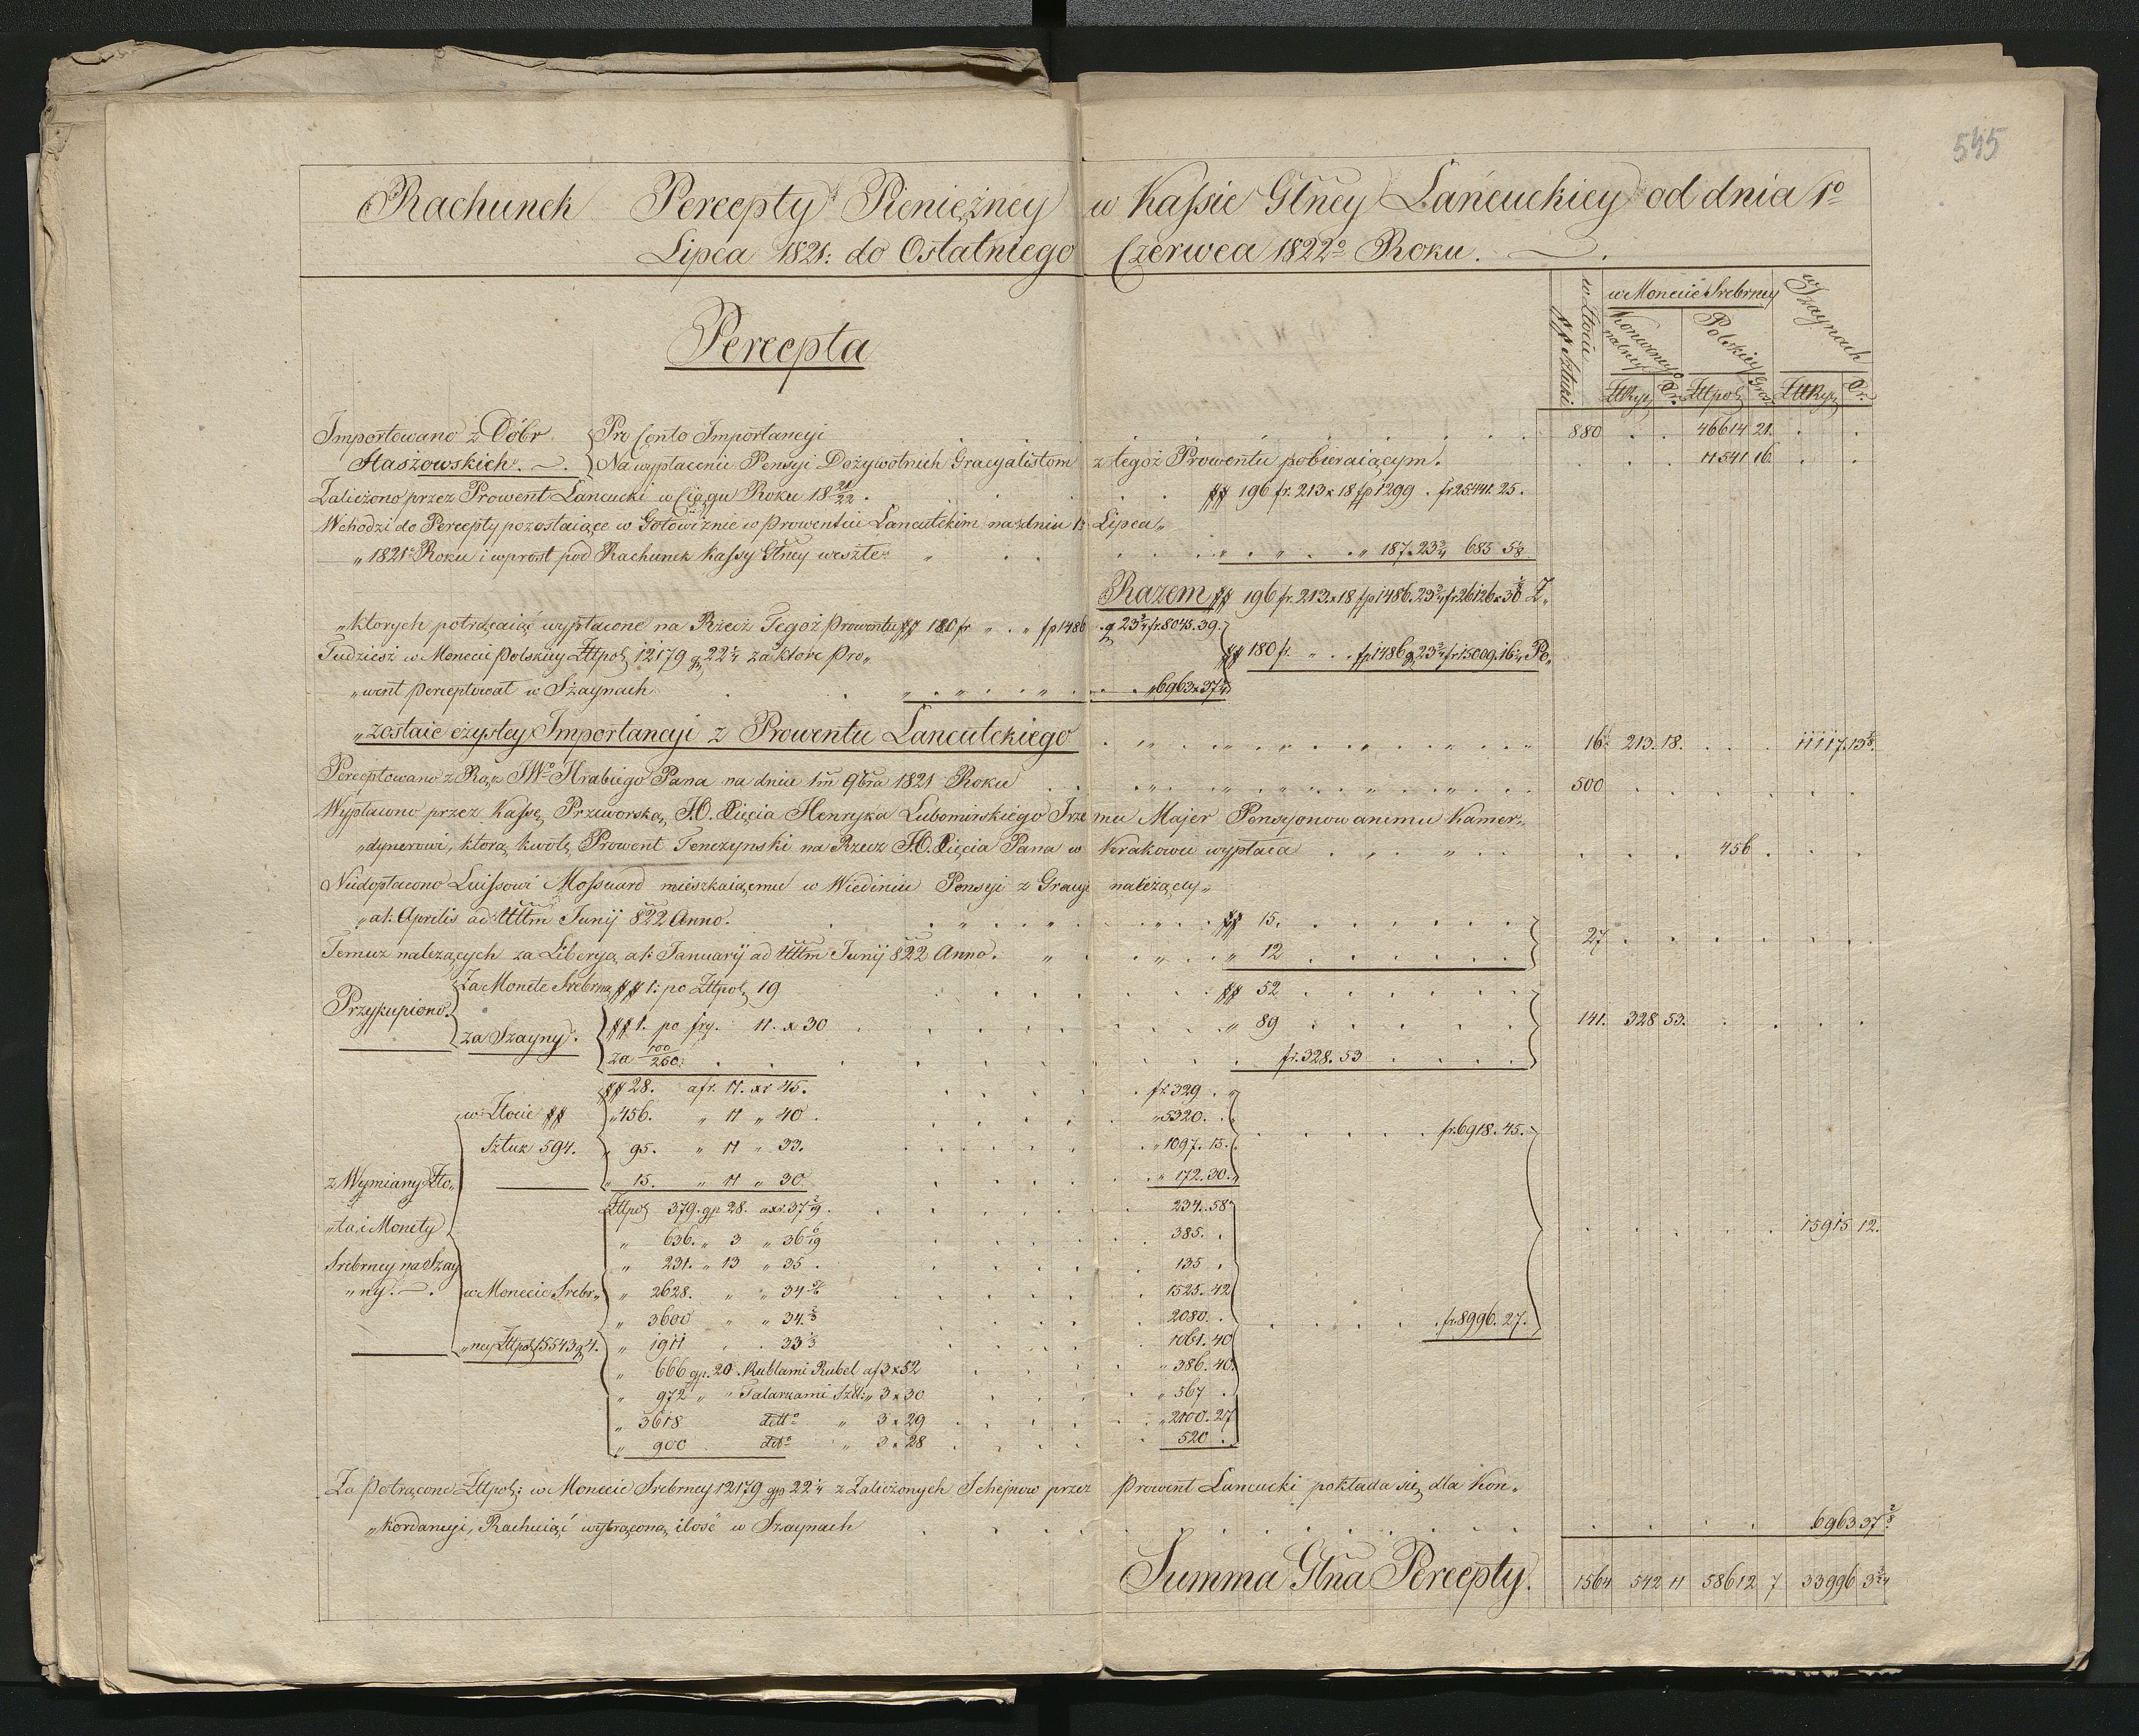 545
Rachunek Percepty Pieniężney w Kassie Głney Łańcuckiey od dnia 1o
Lipca 1821: do Ostatniego Czerwca 1822o Roku.
w Złocie ## Sztuki
w Monecie Srebrney
Konwencyonalney
Polskiey
Szaynach
ZłRyń Xr. Złpol Grosz ZłRyń Xr.
Percepta
Importowano z Dóbr Pro Conto Importancyi 880 46614 21.
Staszowskich. Na wypłacenie Pensyi Dożywotnich Gracyalistom z tegoż Prowentu pobieraiącym. 11541 16.
Zaliczono przez Prowent Łancucki w Ciągu Roku 18 21/22. ## 196 fr. 213 x 18 fp 1299. fr 25441. 25.
Wchodzi do Percepty pozostaiące w Gotowiznie w Prowentu Łancutskim na dniu 1. Lipca
1821o Roku i wprost pod Rachunek Kassy Głney weszłe 187. 23 3/4 685 5 1/8
Razem ## 196 fr. 213 x 18 fp 1486. 23 3/4 fr 26126 x 30 1/8 Z
ktorych potrącaiąc wypłacone na Rzecz Tegoż Prowentu ## 180 fr fp 1486 g 23 3/4 fr. 8045. 39.
Tudziesz w Monecie Polskiey Złtpol 12179 g 22 1/4 za ktore Pro ## 180 fr. fp 1486 g 23 3/4 fr 15009. 16 1/4 Po
went perceptował w Szaynach 6963 x 37 2/8
zostaie czystey Importancyi z Prowentu Łancutckiego 16. 213. 18. 11117. 13 7/8.
Perceptowano z Rąk JWo Hrabiego Pana na dniu 1m 9bra 1821 Roku 500
Wypłacono przez Kassę Przeworską J.O. Xięcia Henryka Lubomirskiego Jrzemu Majer Pensyonowanemu Kamer
dynerowi, ktorą kwotę Prowent Tenczynski na Rzecz J.O. Xięcia Pana w Krakowie wypłaca 456
Niedopłacono Luissowi Mossuard mieszkaiącemu w Wiedniu Pensyi z Gracyi należący
a 1: Aprilis ad Ulltm Junij 822 Anno. ## 15.
Temuz należących za Liberyą a 1: Januarij ad Ulltm Junij 822 Anno. 12 27
Przykupiono. Za Monetę Srebrną ## 1: po Złtpol 19 ## 52
za Szayny. ## 1. po fry. 11. x 30 89 141. 328 53.
za 100/250: fr. 328. 53
z Wymiany Zło
ta, i Monety
Srebrney na Szay
ny.
w Złocie ##
Sztuk 594.
## 28. a fr. 11. xr 45. fr 329
456. 11 40. 5320.
95. 11 33. 1097. 15.
15. 11 30. 172. 30.
fr. 6918. 45.
w Monecie Srebr
ney Złtpol 15543 g 4.
Złtpol 379. gp 28. a xr. 37 2/19. 234. 58
636. 3 36 6/19 385.
231. 13 35. 135
2628. 34 1525. 42
3600 34. 2/3 2080.
1911 33 1/3 1061. 40
666 gp. 20. Rublami Rubel a f 3 x 52 386. 40.
972 Talarkami Sztt: 3 x 30 567
3618 detto 3 x 29 2100. 27
900 detto 3 x 28 520
fr. 8996. 27.
15915 12.
Za Potrącone Złtpol: w Monecie Srebrney 12179 gp 22 1/4 z Zaliczonych Schejnow przez Prowent Łancucki pokłada się dla Kon
kordancyi, Rachuiąć wytrąconą ilość w Szaynach 6963 37 2/8
Summa Głna Percepty. 1564 542 11 58612 7 33996 3 3/4